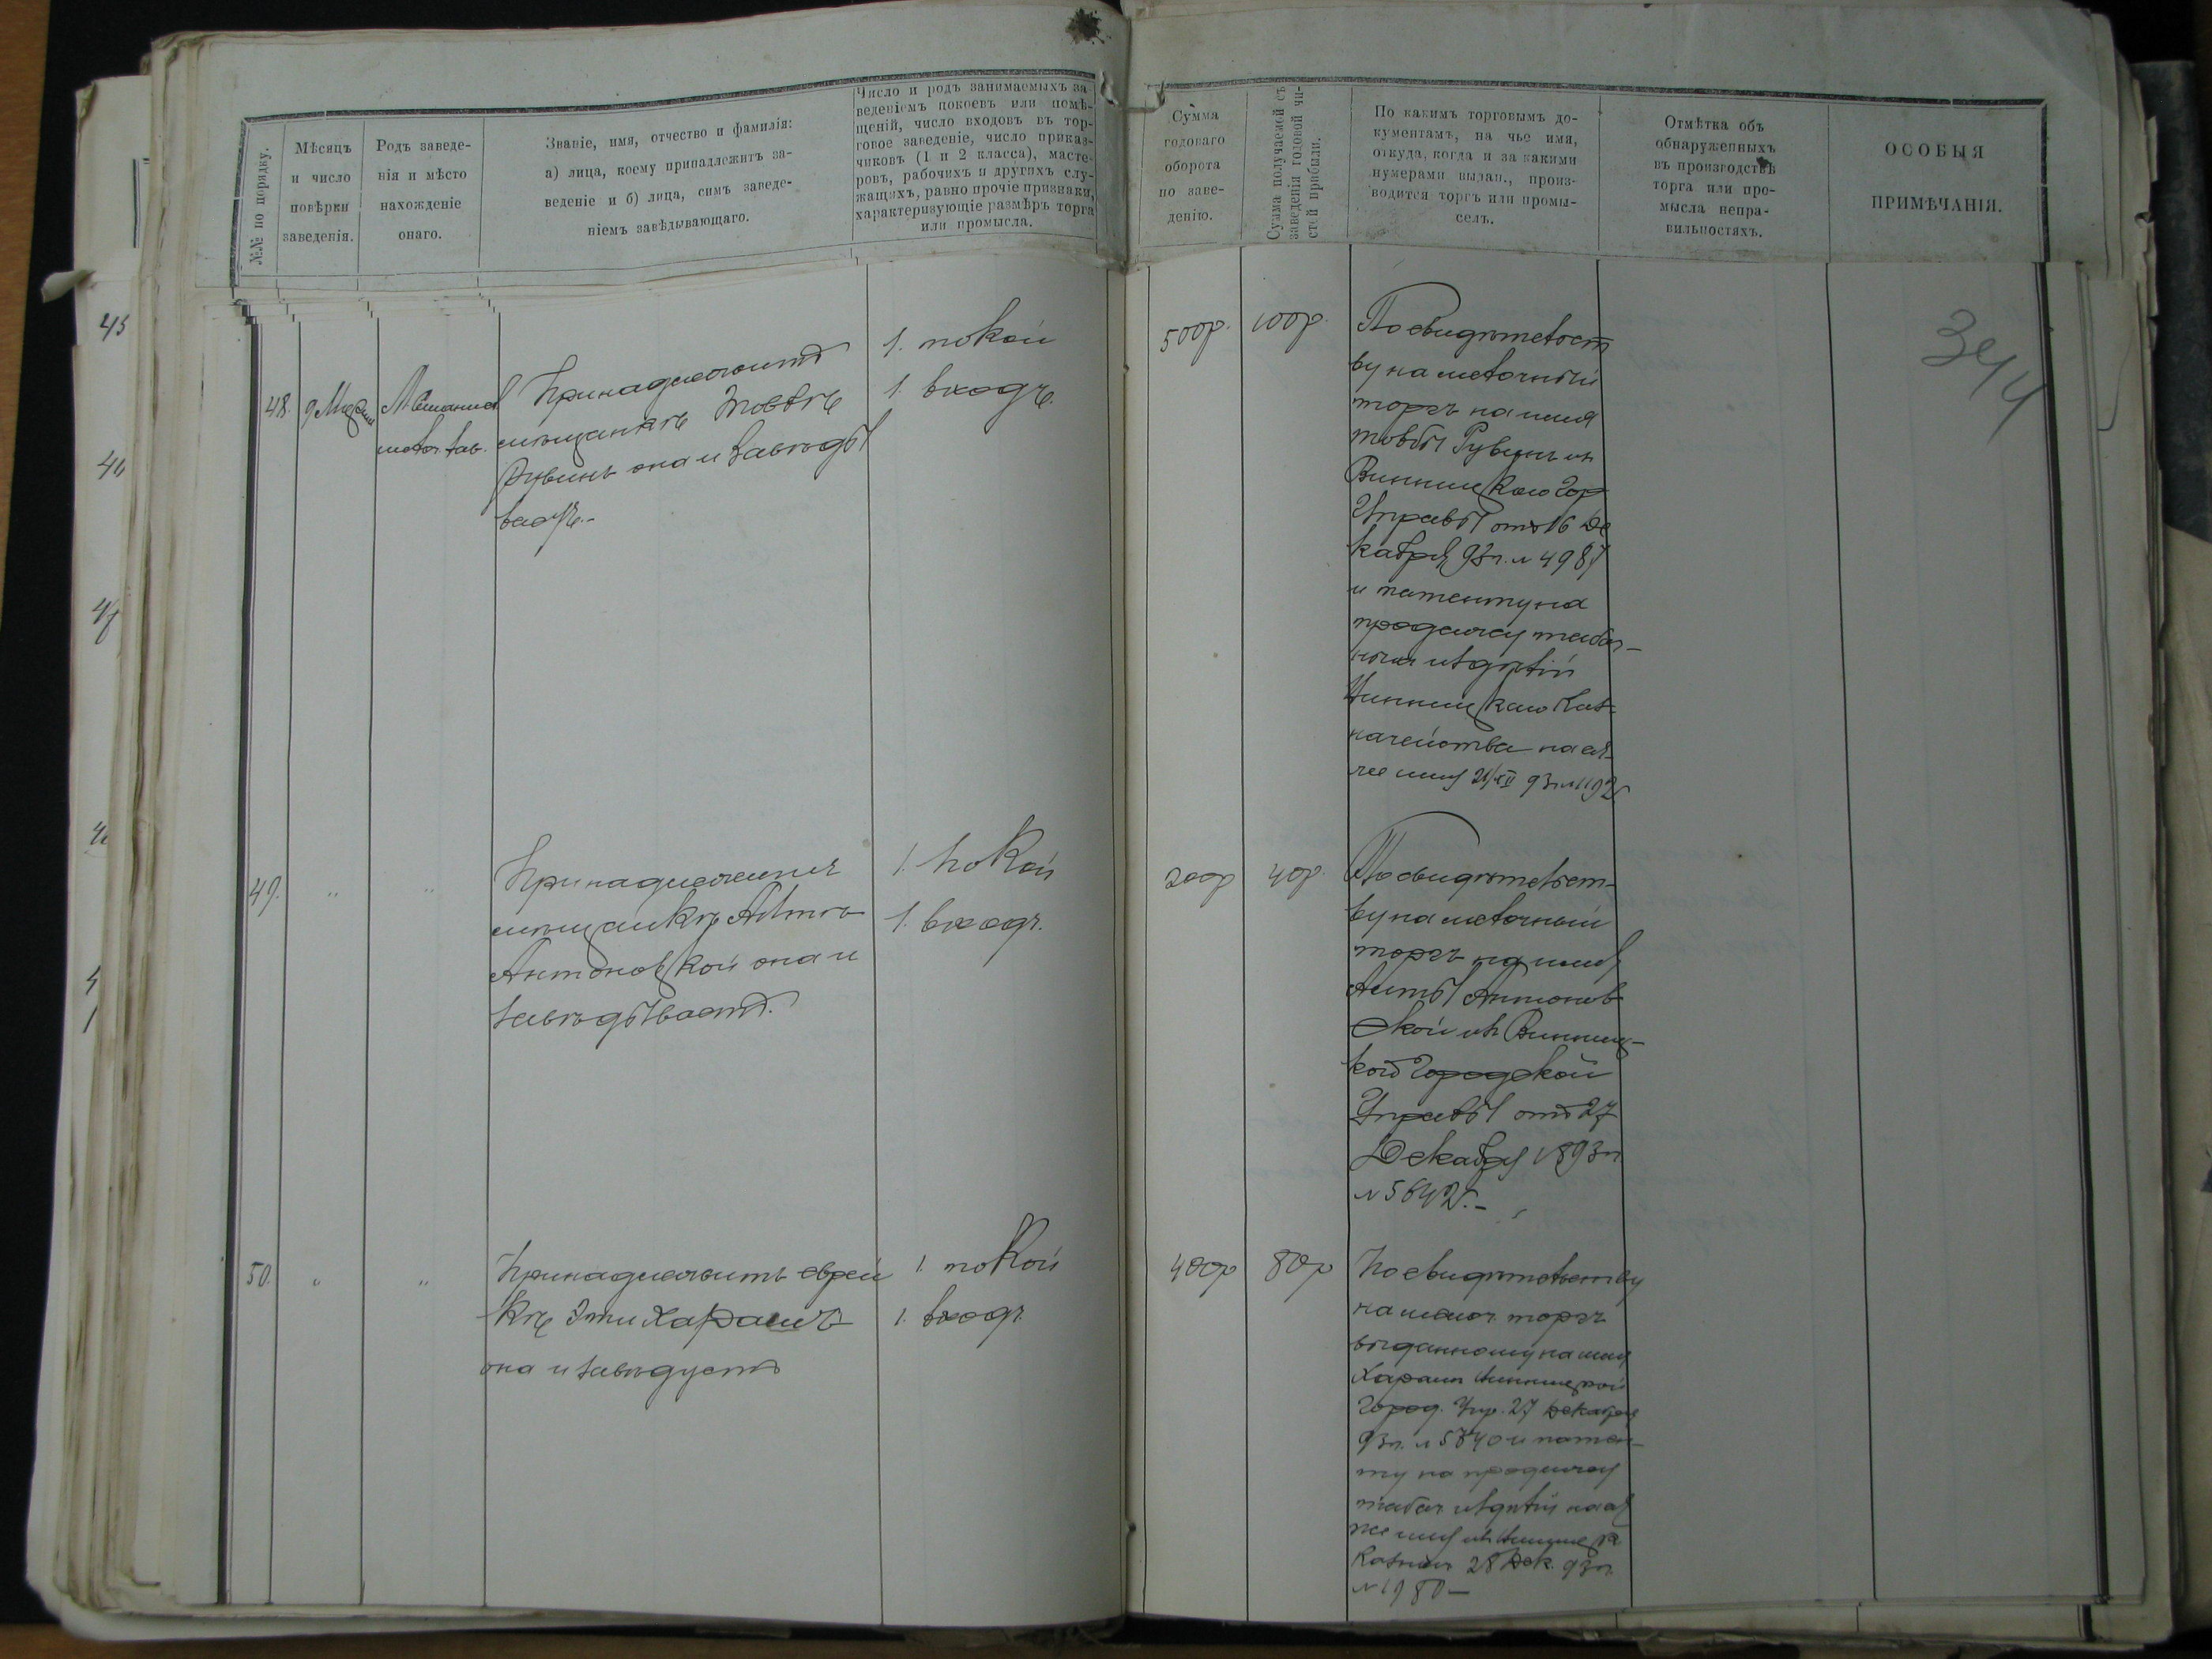 №№ по порядку.
Мѣсяцъ
и число
повѣрки
заведенія.
Родъ заведе-
нія и мѣсто
нахожденіе
онаго.
Званіе, имя, отчество и фамилія:
а) лица, коему принадлежитъ за-
веденіе и б) лица, симъ заведе-
ніемъ завѣдывающаго.
Число и родъ занимаемыхъ за-
веденіемъ покоевъ или помѣ-
щеній, число входовъ въ тор-
говое заведеніе, число приказ-
чиковъ (1 и 2 класса), масте-
ровъ, рабочихъ и другихъ слу-
жащихъ, равно прочіе признаки,
характеризующіе размѣръ торга
или промысла.
Сумма
годоваго
оборота
по заве-
денію.
Сумма получаемой съ
заведенія годовой чи-
стой прибыли.
По какимъ торговымъ до-
кументамъ, на чье имя,
откуда, когда и за какими
нумерами выдан., произ-
водится торгъ или промы-
селъ.
Отмѣтка объ
обнаруженныхъ
въ производствѣ
торга или про-
мысла непра-
вильностяхъ.
ОСОБЫЯ
ПРИМѢЧАНІЯ.
48.
мелоч. лав.
Принадлежитъ
мѣщанкѣ Товбѣ
Рувинъ она и завѣды
ваетъ.-
1. покой
1. входъ.
500р.
100р.
По свидѣтельст
ву на мелочный
торгъ на имя
Товбы Рувинъ изъ
Винницкаго Гор
Управы отъ 16 Де
кабря 93 г. № 4987
и патенту на
продажу табач-
ныхъ издѣлій
Винницкаго Каз-
начейства на ея
же имя 21/XII 93 г.
344
49.
"
"
Принадлежитъ
мѣщанкѣ
Антоновской она и
завѣдываетъ.
1. покой
1. входъ.
200р
40р.
По свидѣтельст-
ву на мелочный
торгъ на имя
Антонов
ской изъ Винниц-
кой Городской
Управы отъ 27
Декабря 1893 г.
№ 5642.-
50.
"
"
Принадлежитъ еврей
кѣ Эти Харашъ
она и завѣдуетъ
1. покой
1. входъ.
400р
80р
По свидѣтельству
на мелоч. торгъ
выданному на имя
Харашъ Винницкой
Город. Упр. 27 Декабря
93 г. № 5640 и патен-
ту на продажу
табач. издѣлій на ея
же имя изъ Винниц. К
Казнач. 28 Дек. 93 г.
№ 1980-